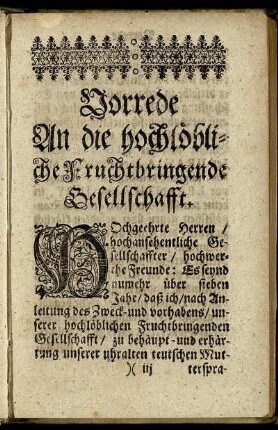 Vorrede
An die hochlöbli-
che Fruchtbringende
Gesellschafft.
HOchgeehrte Herren /
hochansehentliche Ge-
sellschaffter / hochwer-
the Freunde: Es seynd
nunmehr über sieben
Jahr / daß ich / nach An-
leitung des Zweck- und vorhabens / un-
serer hochlöblichen Fruchtbringenden
Gesellschafft / zu behäupt- und erhär-
tung unserer uhralten teutschen Mut-
)( iij terspra-